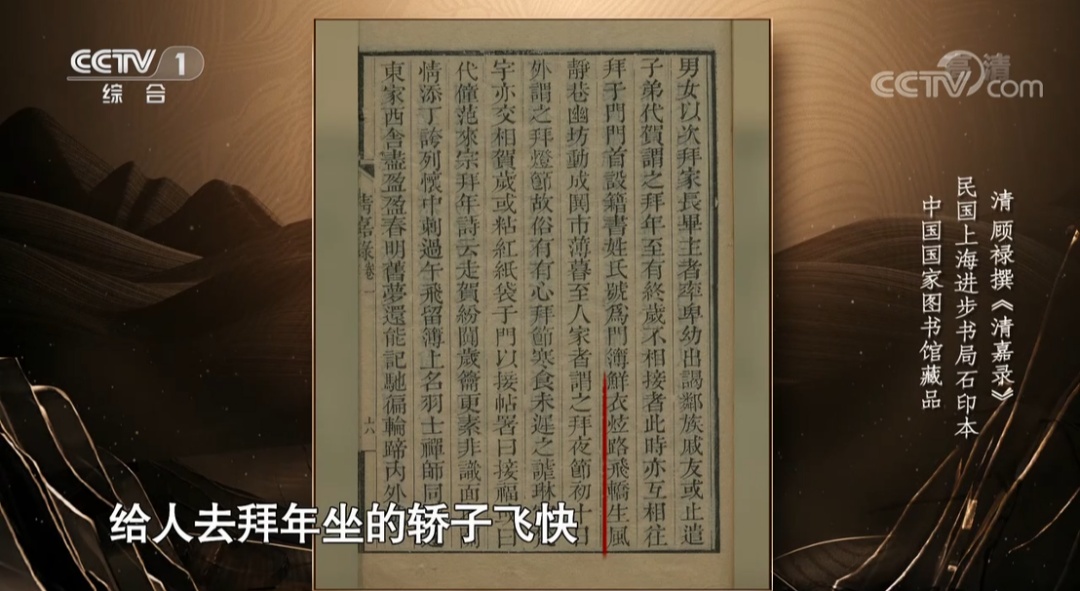 CCTV 1
综合
CCTV.com
高清
男女以次拜家長畢主者率卑幼出謁鄰族戚友或止遣
子弟代賀謂之拜年至有終歲不相接者此時亦互相往
拜于門門首設籍書姓氏號爲門簿鮮衣炫路飛轎生風
靜巷幽坊動成鬨市薄暮至人家者謂之拜夜節初十日
外謂之拜燈節故俗有有心拜節寒食未遲之謔琳
字亦交相賀歲或粘紅紙袋于門以接帖署曰接福曰
代僮范來宗拜年詩云走賀紛闐歲籥更素非識面
情添丁誇列懷中刺過午飛留簿上名羽士禪師同
東家西舍盡盈盈春明舊夢還能記馳徧輪蹄内外
清嘉錄卷一
六八
清 顾禄撰《清嘉录》
民国上海进步书局石印本
中国国家图书馆藏品
给人去拜年坐的轿子飞快